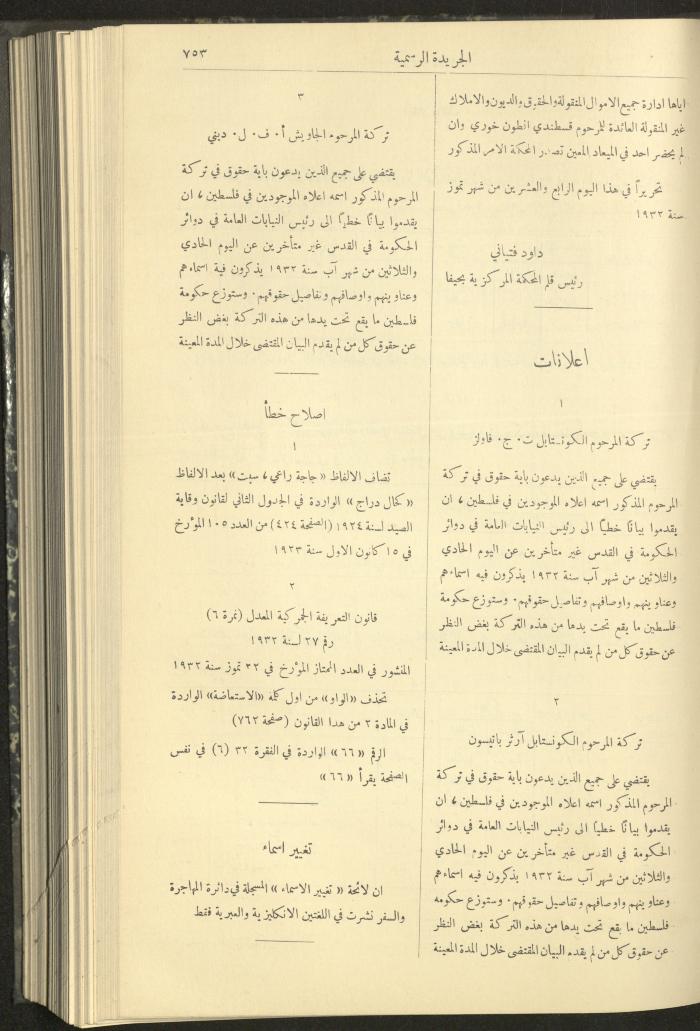 الجريدة الرسمية
٧٥٣
اياها ادارة جميع الاموال المنقولة والحقوق والديون والاملاك
غير المنقولة العائدة للمرحوم قسطندي انطون خوري وان
لم يحضر احد في الميعاد المعين تصدر المحكمة الامر المذكور
تحريراً في هذا اليوم الرابع والعشرين من شهر تموز
سنة ١٩٣٢
داود فتياني
رئيس قلم المحكمة المركزية بحيفا
اعلانات
١
تركة المرحوم الكونستابل ت. ج. فاولز
يقتضي على جميع الذين يدعون باية حقوق في تركة
المرحوم المذكور اسمه اعلاه الموجودين في فلسطين، ان
يقدموا بيانًا خطيًا الى رئيس النيابات العامة في دوائر
الحكومة في القدس غير متأخرين عن اليوم الحادي
والثلاثين من شهر آب سنة ١٩٣٢ يذكرون فيه اسماءهم
وعناوينهم واوصافهم وتفاصيل حقوقهم. وستوزع حكومة
فلسطين ما يقع تحت يدها من هذه التركة بغض النظر
عن حقوق كل من لم يقدم البيان المقتضى خلال المدة المعينة
٢
تركة المرحوم الكونستابل آرثر باتيسون
يقتضي على جميع الذين يدعون باية حقوق في تركة
المرحوم المذكور اسمه اعلاه الموجودين في فلسطين، ان
يقدموا بيانًا خطيًا الى رئيس النيابات العامة في دوائر
الحكومة في القدس غير متأخرين عن اليوم الحادي
والثلاثين من شهر آب سنة ١٩٣٢ يذكرون فيه اسماءهم
وعناوينهم واوصافهم وتفاصيل حقوقهم. وستوزع حكومه
فلسطين ما يقع تحت يدها من هذه التركة بغض النظر
عن حقوق كل من لم يقدم البيان المقتضى خلال المدة المعينة
٣
تركة المرحوم الجاويش أ. ف. ل. ديني
يقتضي على جميع الذين يدعون باية حقوق في تركة
المرحوم المذكور اسمه اعلاه الموجودين في فلسطين، ان
يقدموا بيانًا خطيًا الى رئيس النيابات العامة في دوائر
الحكومة في القدس غير متأخرين عن اليوم الحادي
والثلاثين من شهر آب سنة ١٩٣٢ يذكرون فيه اسماءهم
وعناوينهم واوصافهم وتفاصيل حقوقهم. وستوزع حكومة
فلسطين ما يقع تحت يدها من هذه التركة بغض النظر
عن حقوق كل من لم يقدم البيان المقتضى خلال المدة المعينة
اصلاح خطأ
١
تضاف الالفاظ «جاجة راعي، سبت» بعد الالفاظ
«كحال دراج» الواردة في الجدول الثاني لقانون وقاية
الصيد لسنة ١٩٢٤ (الصفحة ٤٢٤) من العدد ١٠٥ المؤرخ
في ١٥ كانون الاول سنة ١٩٢٣
٢
قانون التعريفة الجمركية المعدل (نمرة ٦)
رقم ٢٧ لسنة ١٩٣٢
المنشور في العدد الممتاز المؤرخ في ٢٢ تموز سنة ١٩٣٢
تحذف «الواو» من اول كلمة «الاستعاضة» الواردة
في المادة ٢ من هذا القانون (صفحة ٧٦٢)
الرقم «٦٦» الواردة في الفقرة ٣٢ (٦) في نفس
الصفحة يقرأ «٦٦»
تغيير اسماء
ان لائحة «تغيير الاسماء» المسجلة في دائرة المهاجرة
والسفر نشرت في اللغتين الانكليزية والعبرية فقط